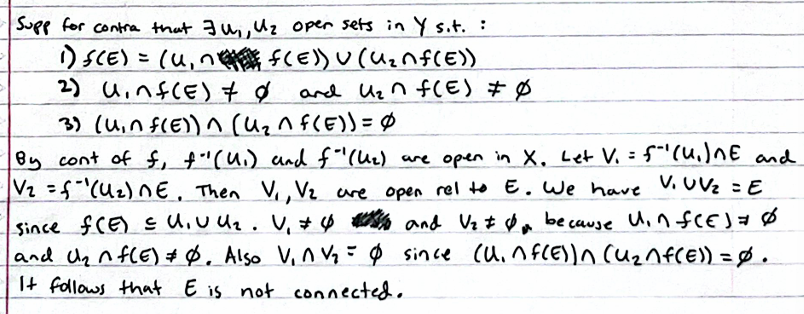 Supp for contra that ∃ U₁, U₂ open sets in Y s.t. :
1) f(E) = (U₁ ∩ f(E)) ∪ (U₂ ∩ f(E))
2) U₁ ∩ f(E) ≠ ∅ and U₂ ∩ f(E) ≠ ∅
3) (U₁ ∩ f(E)) ∩ (U₂ ∩ f(E)) = ∅
By cont of f, f⁻¹(U₁) and f⁻¹(U₂) are open in X. Let V₁ = f⁻¹(U₁) ∩ E and
V₂ = f⁻¹(U₂) ∩ E. Then V₁, V₂ are open rel to E. We have V₁ ∪ V₂ = E
since f(E) ⊆ U₁ ∪ U₂. V₁ ≠ ∅ and V₂ ≠ ∅, because U₁ ∩ f(E) ≠ ∅
and U₂ ∩ f(E) ≠ ∅. Also V₁ ∩ V₂ = ∅ since (U₁ ∩ f(E)) ∩ (U₂ ∩ f(E)) = ∅.
It follows that E is not connected.